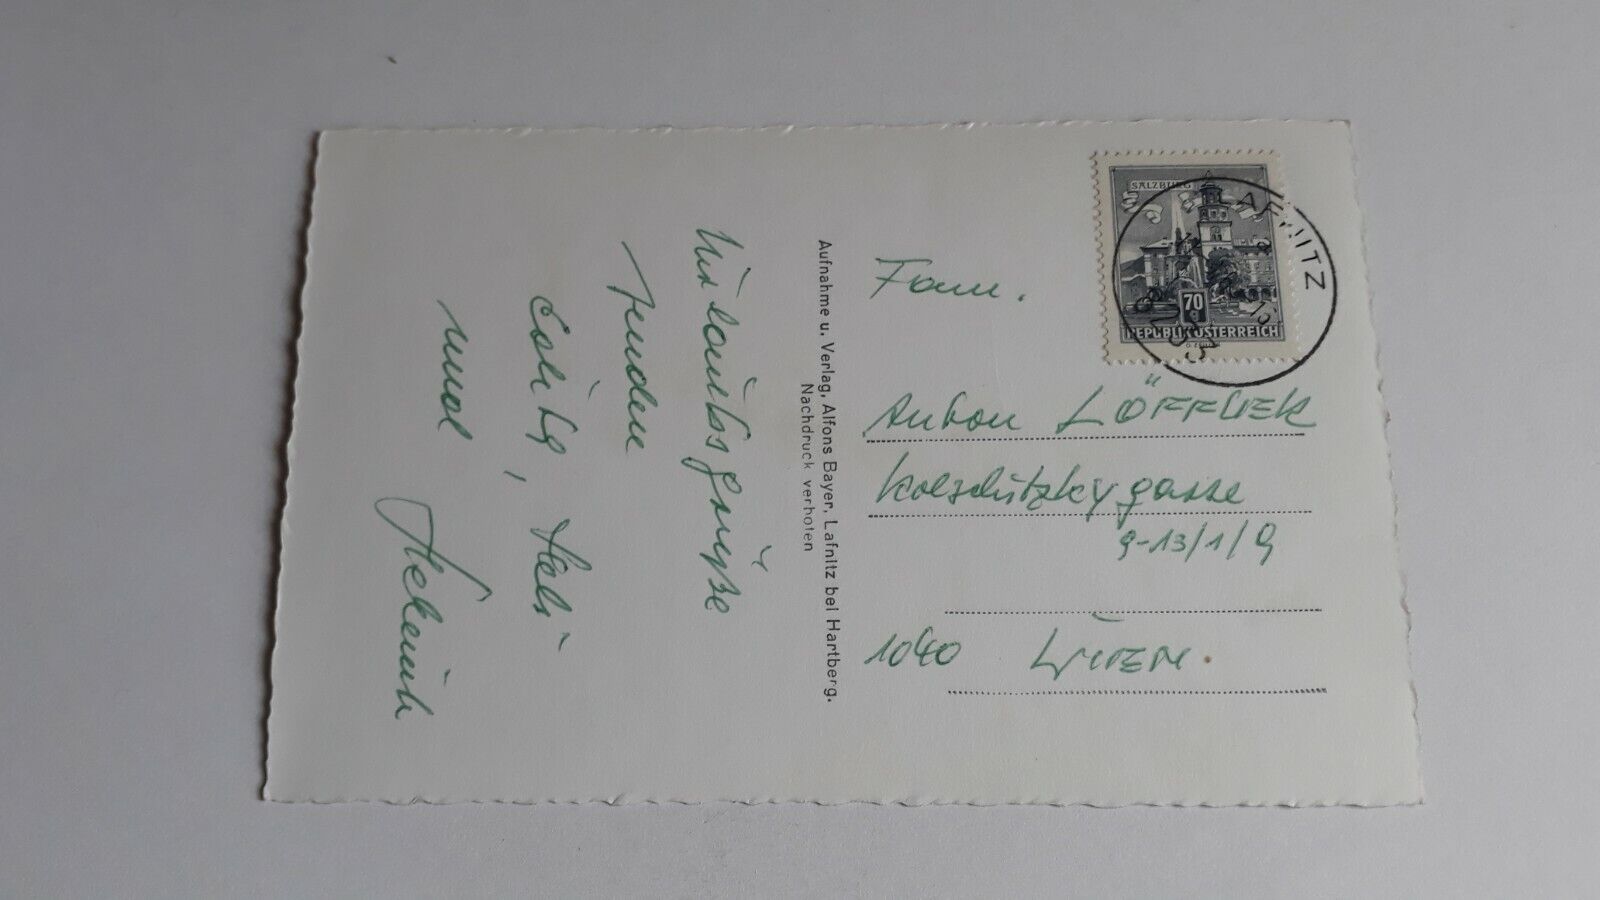 Urlaubsgrüße
senden
Edith, Heli
und Helmuth
Aufnahme u. Verlag, Alfons Bayer, Lafnitz bei Hartberg.
Nachdruck verboten
SALZBURG
70 g
REPUBLIK ÖSTERREICH
LAFNITZ
8233
Fam.
Anton LÖFFLER
Kolschitzkygasse
9-13/1/9
1040 WIEN.